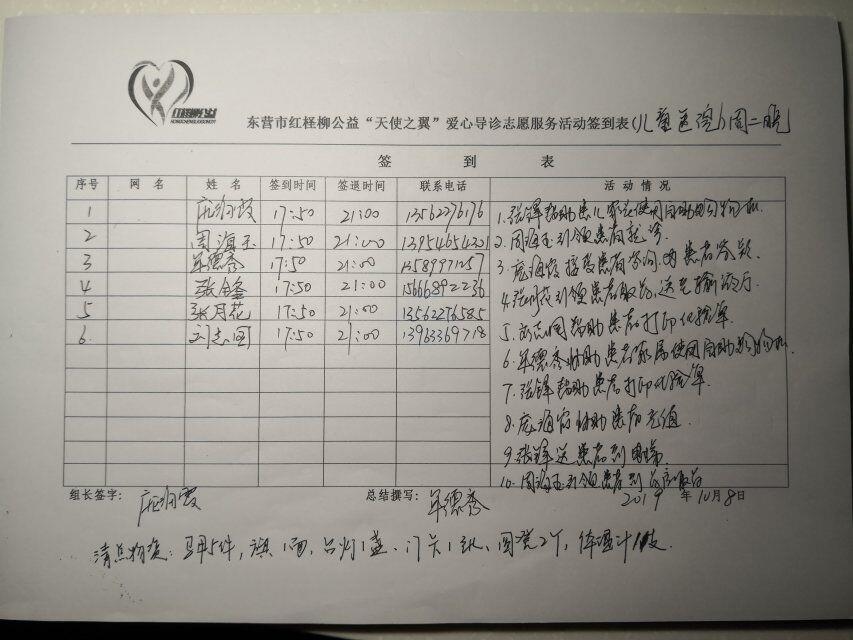 红柽柳公益
东营市红柽柳公益“天使之翼”爱心导诊志愿服务活动签到表(儿童医院)周二晚
签 到 表
序号 网 名 姓 名 签到时间 签退时间 联系电话 活 动 情 况
1 庞海霞 17:50 21:00 13562276176
2 周海玉 17:50 21:00 13954654321
3 单德秀 17:50 21:00 13589971257
4 张锋 17:50 21:00 15666892236
5 张月花 17:50 21:00 13562276585
6. 刘志国 17:50 21:00 13963369718
1. 张锋帮助患儿家长使用自助购物机.
2. 周海玉引领患者就诊
3. 庞海霞接受患者咨询,为患者答疑.
4. 张月花引领患者取药,送至输液厅
5. 刘志国帮助患者打印化验单.
6. 单德秀协助患者家属使用自助购物机.
7. 张锋帮助患者打印化验单.
8. 庞海霞协助患者充值.
9. 张锋送患者到
10. 周海玉引领患者到
组长签字: 庞海霞 总结撰写: 单德秀 2019 年 10月 8日
清点物资: 马甲5件, 旗1面, 台灯1盏、门卡1张、圆凳2个, 体温计1支.